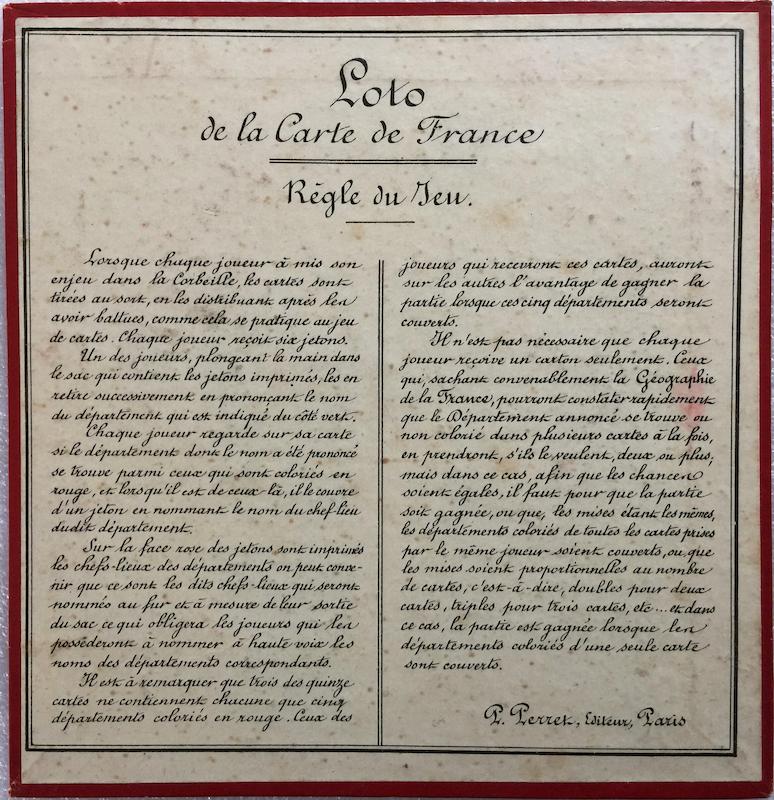 Loto
de la Carte de France
Règle du Jeu.
Lorsque chaque joueur à mis son
enjeu dans la Corbeille, les cartes sont
tirées au sort, en les distribuant après les
avoir battues, comme cela se pratique au jeu
de cartes. Chaque joueur reçoit six jetons.
Un des joueurs, plongeant la main dans
le sac qui contient les jetons imprimés, les en
retire successivement en prononçant le nom
du département qui est indiqué du côté vert.
Chaque joueur regarde sur sa carte
si le département dont le nom a été prononcé
se trouve parmi ceux qui sont coloriés en
rouge, et lorsqu'il est de ceux-là, il le couvre
d'un jeton en nommant le nom du chef-lieu
dudit département.
Sur la face rose des jetons sont imprimés
les chefs-lieux des départements on peut conve-
nir que ce sont les dits chefs-lieux qui seront
nommés au fur et à mesure de leur sortie
du sac ce qui obligera les joueurs qui les
possèderont à nommer à haute voix les
noms des départements correspondants.
Il est à remarquer que trois des quinze
cartes ne contiennent chacune que cinq
départements coloriés en rouge. Ceux des
joueurs qui recevront ces cartes, auront
sur les autres l'avantage de gagner la
partie lorsque ces cinq départements seront
couverts.
Il n'est pas nécessaire que chaque
joueur reçoive un carton seulement. Ceux
qui, sachant convenablement la Géographie
de la France, pourront constater rapidement
que le Département annoncé se trouve ou
non colorié dans plusieurs cartes à la fois,
en prendront, s'ils le veulent, deux, ou plus;
mais dans ce cas, afin que les chances
soient égales, il faut pour que la partie
soit gagnée, ou que, les mises étant les mêmes,
les départements coloriés de toutes les cartes prises
par le même joueur soient couverts, ou que
les mises soient proportionnelles au nombre
de cartes, c'est-à-dire, doubles pour deux
cartes, triples pour trois cartes, etc ... et dans
ce cas, la partie est gagnée lorsque les
départements coloriés d'une seule carte
sont couverts.
P. Perret, Editeur, Paris